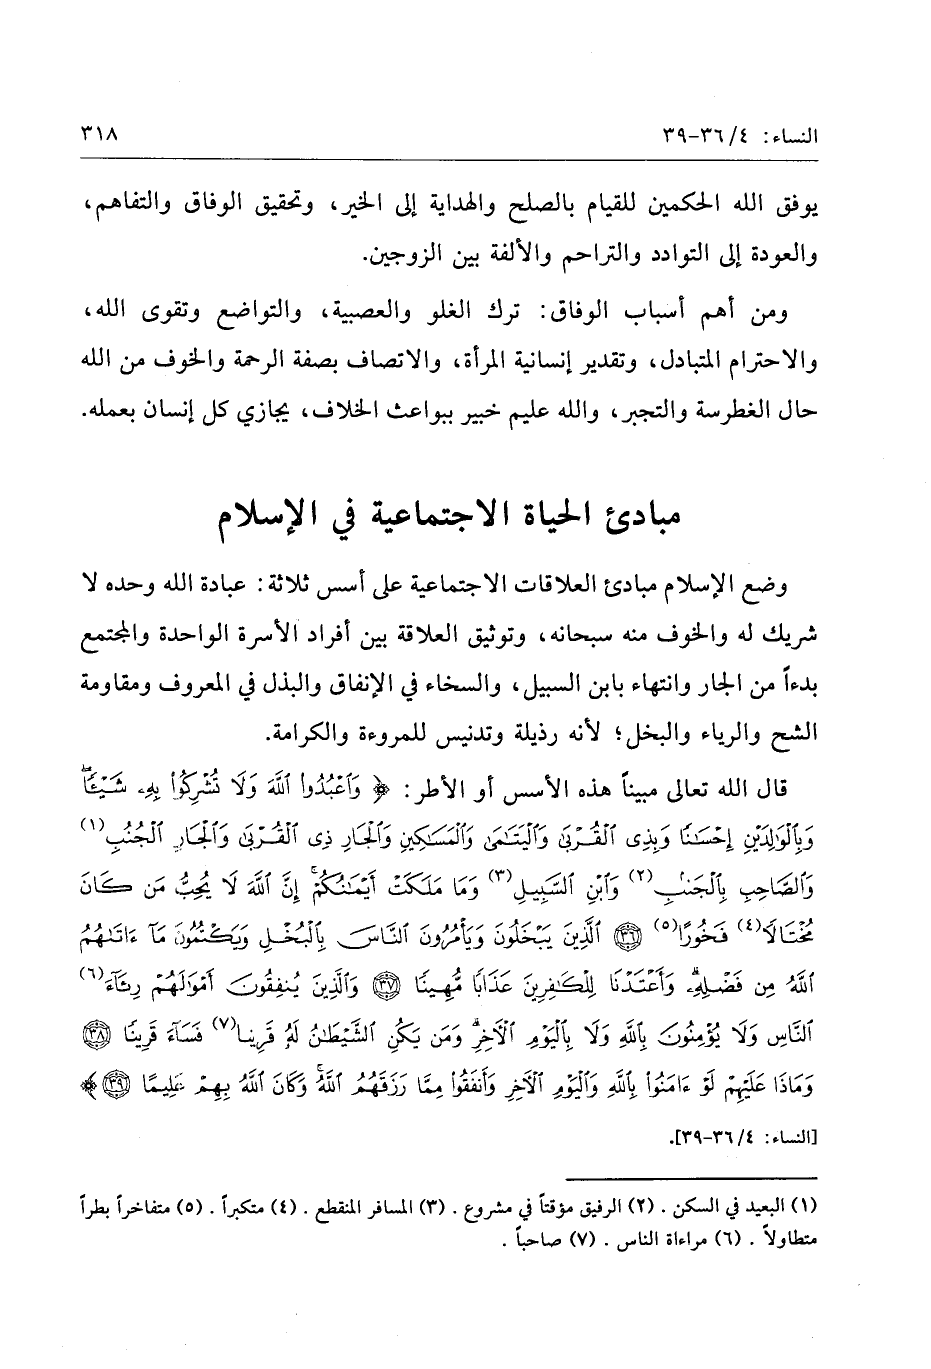 النساء: ٤/ ٣٦-٣٩ ٣١٨
يوفق الله الحكمين للقيام بالصلح والهداية إلى الخير، وتحقيق الوفاق والتفاهم،
والعودة إلى التوادد والتراحم والألفة بين الزوجين.
ومن أهم أسباب الوفاق: ترك الغلو والعصبية، والتواضع وتقوى الله،
والاحترام المتبادل، وتقدير إنسانية المرأة، والاتصاف بصفة الرحمة والخوف من الله
حال الغطرسة والتجبر، والله عليم خبير ببواعث الخلاف، يجازي كل إنسان بعمله.
مبادئ الحياة الاجتماعية في الإسلام
وضع الإسلام مبادئ العلاقات الاجتماعية على أسس ثلاثة: عبادة الله وحده لا
شريك له والخوف منه سبحانه، وتوثيق العلاقة بين أفراد الأسرة الواحدة والمجتمع
بدءاً من الجار وانتهاء بابن السبيل، والسخاء في الإنفاق والبذل في المعروف ومقاومة
الشح والرياء والبخل؛ لأنه رذيلة وتدنيس للمروءة والكرامة.
قال الله تعالى مبيناً هذه الأسس أو الأطر: ﴿ وَٱعْبُدُوا۟ ٱللَّهَ وَلَا تُشْرِكُوا۟ بِهِۦ شَيْـًٔا ۖ
وَبِٱلْوَٰلِدَيْنِ إِحْسَـٰنًا وَبِذِى ٱلْقُرْبَىٰ وَٱلْيَتَـٰمَىٰ وَٱلْمَسَـٰكِينِ وَٱلْجَارِ ذِى ٱلْقُرْبَىٰ وَٱلْجَارِ ٱلْجُنُبِ(١)
وَٱلصَّاحِبِ بِٱلْجَنۢبِ(٢) وَٱبْنِ ٱلسَّبِيلِ(٣) وَمَا مَلَكَتْ أَيْمَـٰنُكُمْ ۗ إِنَّ ٱللَّهَ لَا يُحِبُّ مَن كَانَ
مُخْتَالًا(٤) فَخُورًا(٥) ٣٦ ٱلَّذِينَ يَبْخَلُونَ وَيَأْمُرُونَ ٱلنَّاسَ بِٱلْبُخْلِ وَيَكْتُمُونَ مَآ ءَاتَىٰهُمُ
ٱللَّهُ مِن فَضْلِهِۦ ۗ وَأَعْتَدْنَا لِلْكَـٰفِرِينَ عَذَابًا مُّهِينًا ٣٧ وَٱلَّذِينَ يُنفِقُونَ أَمْوَٰلَهُمْ رِئَآءَ(٦)
ٱلنَّاسِ وَلَا يُؤْمِنُونَ بِٱللَّهِ وَلَا بِٱلْيَوْمِ ٱلْـَٔاخِرِ ۗ وَمَن يَكُنِ ٱلشَّيْطَـٰنُ لَهُۥ قَرِينًا(٧) فَسَآءَ قَرِينًا ٣٨
وَمَاذَا عَلَيْهِمْ لَوْ ءَامَنُوا۟ بِٱللَّهِ وَٱلْيَوْمِ ٱلْـَٔاخِرِ وَأَنفَقُوا۟ مِمَّا رَزَقَهُمُ ٱللَّهُ ۚ وَكَانَ ٱللَّهُ بِهِمْ عَلِيمًا ٣٩ ﴾
[النساء: ٤/ ٣٦-٣٩].
(١) البعيد في السكن . (٢) الرفيق مؤقتاً في مشروع . (٣) المسافر المنقطع . (٤) متكبراً . (٥) متفاخراً بطراً
متطاولاً . (٦) مراءاة الناس . (٧) صاحباً .